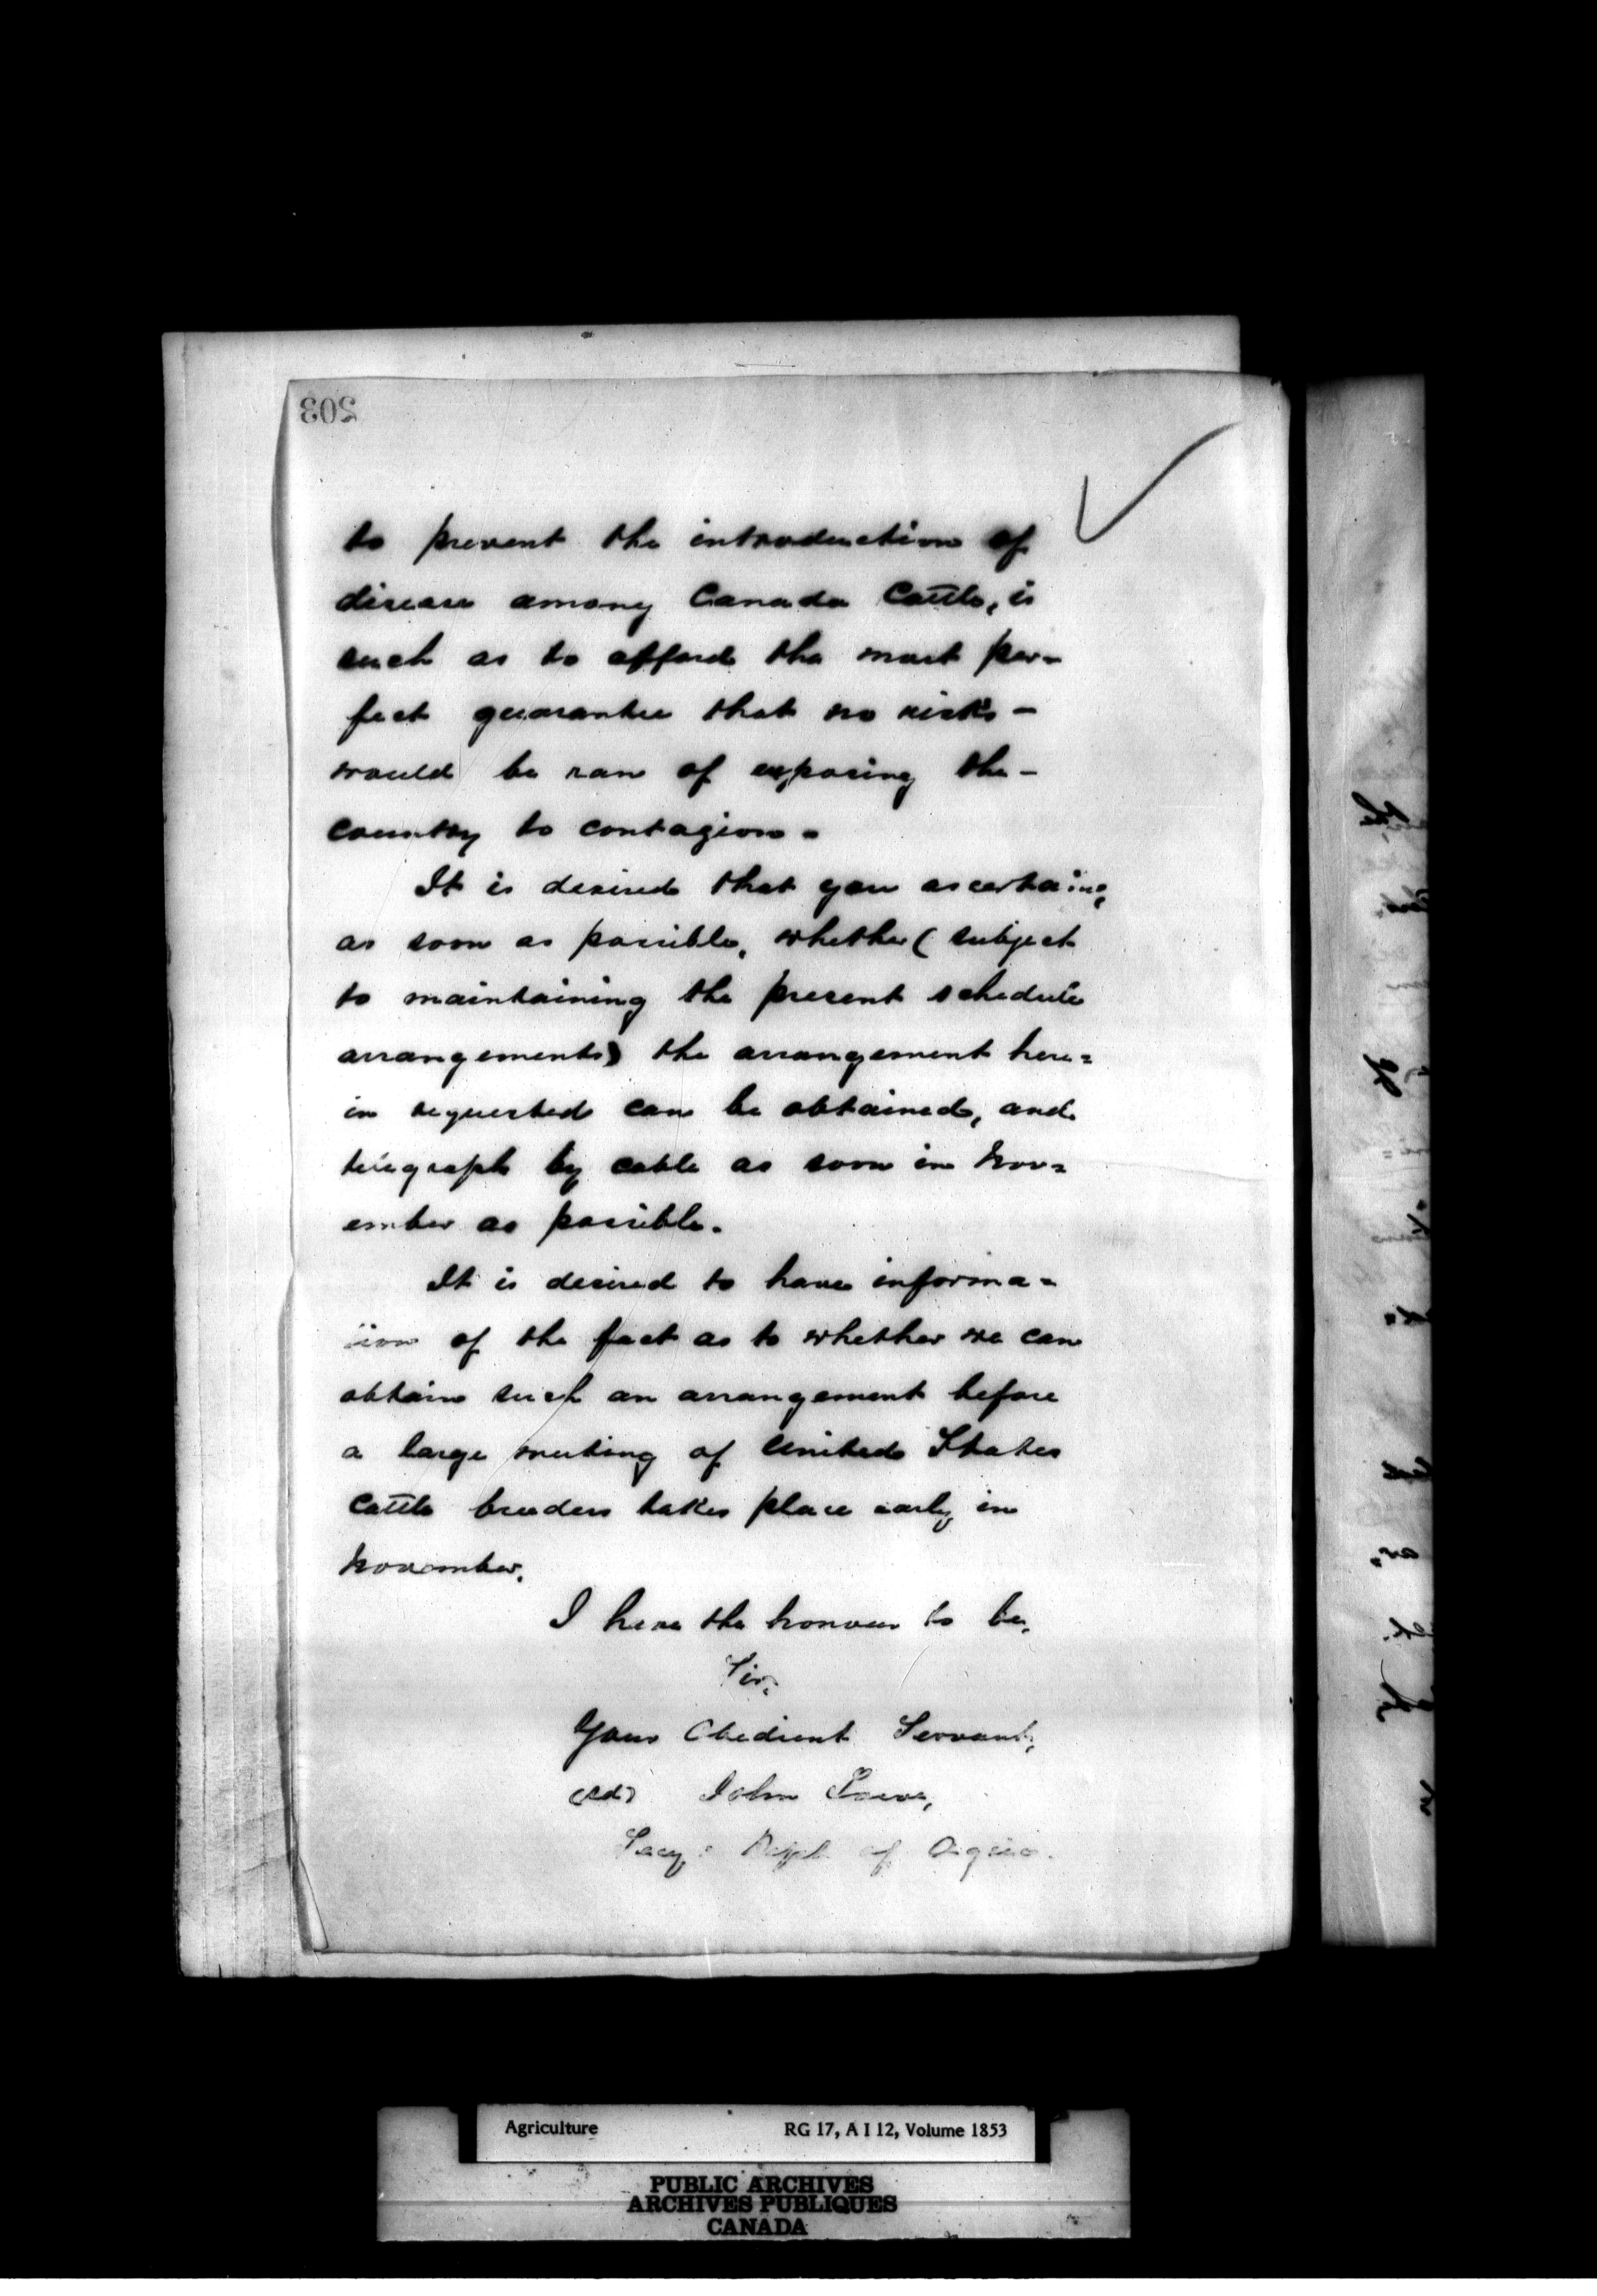 203
to prevent the introduction of
disease among Canada Cattle, is
such as to afford the most per-
fect guarantee that no risks -
would be ran of exposing the -
country to contagion -
It is desired that you ascertain,
as soon as possible, whether (subject
to maintaining the present schedule
arrangements) the arrangement here=
in requested can be obtained, and
telegraph by cable as soon in Nov=
ember as possible.
It is desired to have informa=
tion of the fact as to whether we can
obtain such an arrangement before
a large meeting of United States
Cattle breeders takes place early in
November.
I have the honour to be,
Sir,
Your Obedient Servant,
(sd) John Lowe,
Secy: Dept. of Agric.
Agriculture RG 17, A I 12, Volume 1853
PUBLIC ARCHIVES
ARCHIVES PUBLIQUES
CANADA